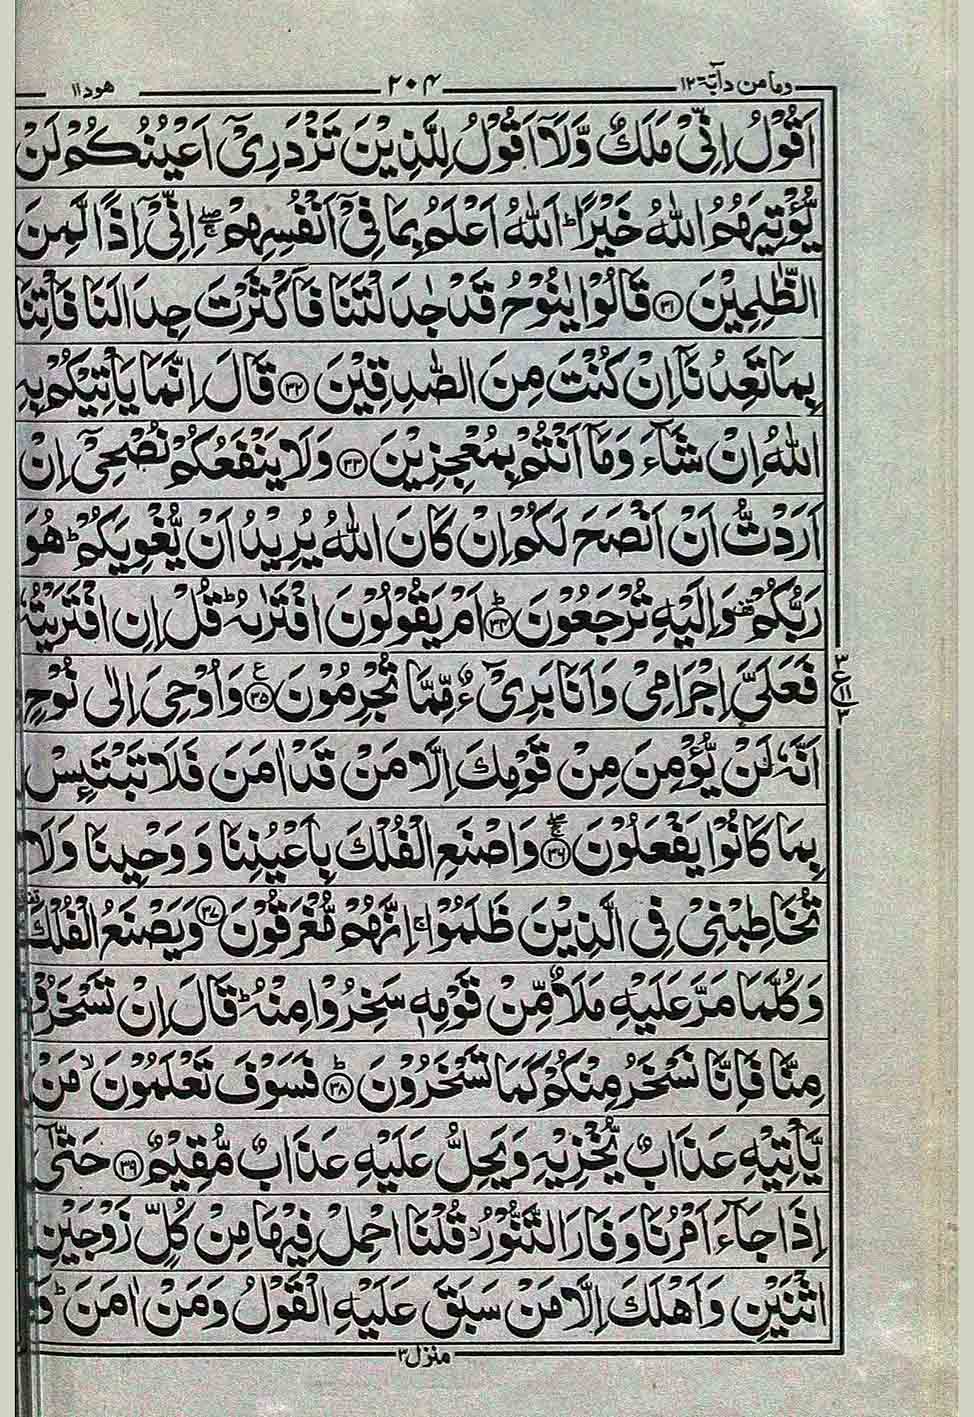 وما من دآبة ١٢ ٢٠٤ هود ١١
اَقُوْلُ اِنِّیْ مَلَكٌ وَّلَاۤ اَقُوْلُ لِلَّذِیْنَ تَزْدَرِیْۤ اَعْیُنُكُمْ لَنْ
یُّؤْتِیَهُمُ اللّٰهُ خَیْرًا ؕ اَللّٰهُ اَعْلَمُ بِمَا فِیْۤ اَنْفُسِهِمْ ۖۚ اِنِّیْۤ اِذًا لَّمِنَ
الظّٰلِمِیْنَ ﴿۳۱﴾ قَالُوْا یٰنُوْحُ قَدْ جٰدَلْتَنَا فَاَكْثَرْتَ جِدَالَنَا فَاْتِنَا
بِمَا تَعِدُنَاۤ اِنْ كُنْتَ مِنَ الصّٰدِقِیْنَ ﴿۳۲﴾ قَالَ اِنَّمَا یَاْتِیْكُمْ بِهِ
اللّٰهُ اِنْ شَآءَ وَمَاۤ اَنْتُمْ بِمُعْجِزِیْنَ ﴿۳۳﴾ وَلَا یَنْفَعُكُمْ نُصْحِیْۤ اِنْ
اَرَدْتُّ اَنْ اَنْصَحَ لَكُمْ اِنْ كَانَ اللّٰهُ یُرِیْدُ اَنْ یُّغْوِیَكُمْ ؕ هُوَ
رَبُّكُمْ ۫ وَاِلَیْهِ تُرْجَعُوْنَ ﴿۳۴﴾ؕ اَمْ یَقُوْلُوْنَ افْتَرٰىهُ ؕ قُلْ اِنِ افْتَرَیْتُهٗ
فَعَلَیَّ اِجْرَامِیْ وَاَنَا بَرِیْٓءٌ مِّمَّا تُجْرِمُوْنَ ﴿۳۵﴾ ع وَاُوْحِیَ اِلٰی نُوْحٍ
ع ٣ ١١ ٣
اَنَّهٗ لَنْ یُّؤْمِنَ مِنْ قَوْمِكَ اِلَّا مَنْ قَدْ اٰمَنَ فَلَا تَبْتَىِٕسْ
بِمَا كَانُوْا یَفْعَلُوْنَ ﴿۳۶﴾ۖۚ وَاصْنَعِ الْفُلْكَ بِاَعْیُنِنَا وَوَحْیِنَا وَلَا
تُخَاطِبْنِیْ فِی الَّذِیْنَ ظَلَمُوْا ۚ اِنَّهُمْ مُّغْرَقُوْنَ ﴿۳۷﴾ وَیَصْنَعُ الْفُلْكَ
وَكُلَّمَا مَرَّ عَلَیْهِ مَلَاٌ مِّنْ قَوْمِهٖ سَخِرُوْا مِنْهُ ؕ قَالَ اِنْ تَسْخَرُوْا
مِنَّا فَاِنَّا نَسْخَرُ مِنْكُمْ كَمَا تَسْخَرُوْنَ ﴿۳۸﴾ؕ فَسَوْفَ تَعْلَمُوْنَ ۙ مَنْ
یَّاْتِیْهِ عَذَابٌ یُّخْزِیْهِ وَیَحِلُّ عَلَیْهِ عَذَابٌ مُّقِیْمٌ ﴿۳۹﴾ حَتّٰۤی
اِذَا جَآءَ اَمْرُنَا وَفَارَ التَّنُّوْرُ ۙ قُلْنَا احْمِلْ فِیْهَا مِنْ كُلٍّ زَوْجَیْنِ
اثْنَیْنِ وَاَهْلَكَ اِلَّا مَنْ سَبَقَ عَلَیْهِ الْقَوْلُ وَمَنْ اٰمَنَ ؕ
منزل ٣